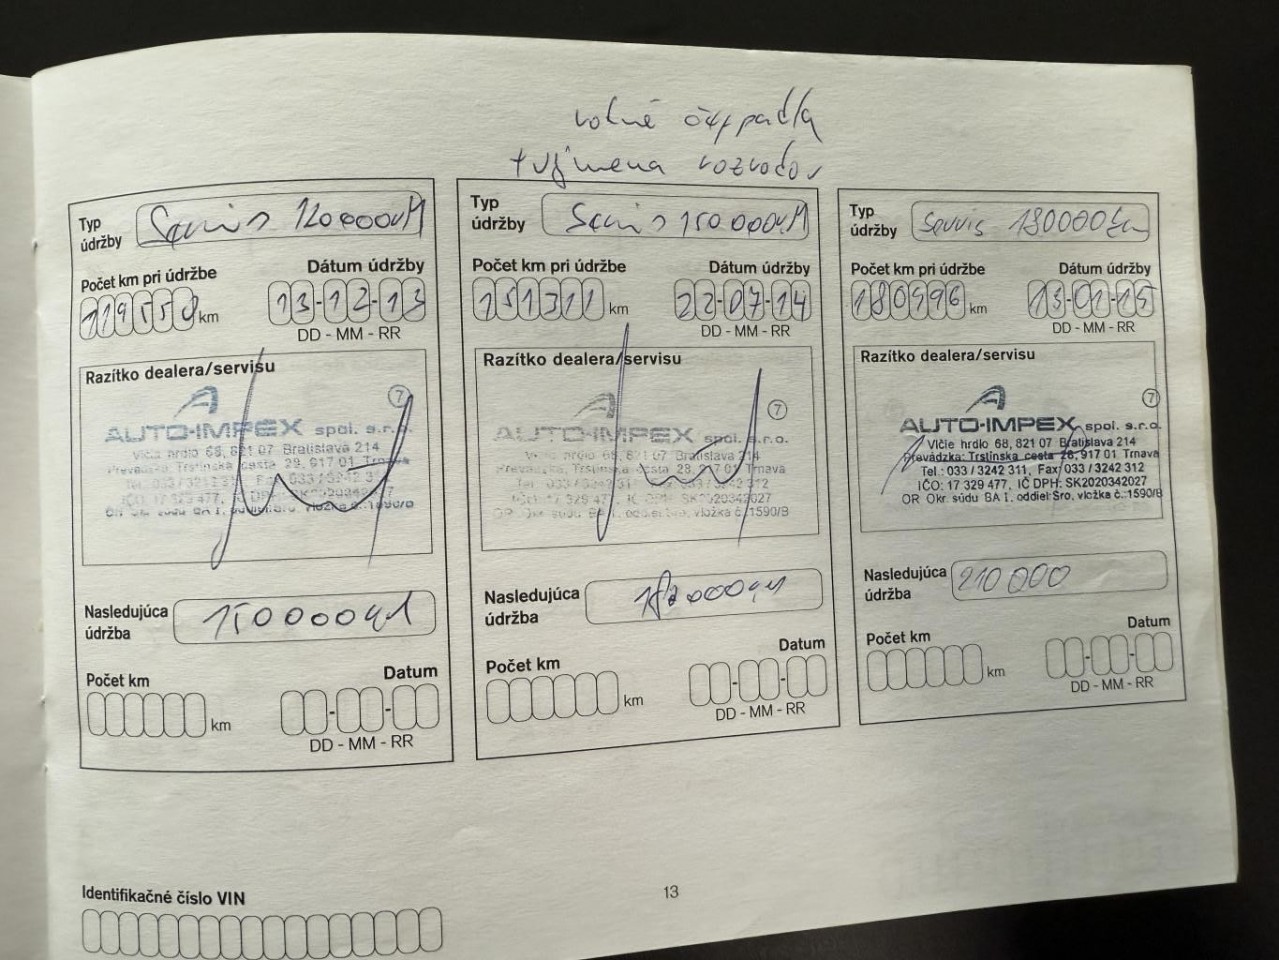 vodné čerpadla
+ výmena rozvodov
Typ údržby Servis 120000KM
Počet km pri údržbe
Dátum údržby
119550 km
13-12-13
DD - MM - RR
Razítko dealera/servisu
7
AUTO-IMPEX spol. s.r.o.
Vlčie hrdlo 68, 821 07 Bratislava 214
Prevádzka: Trstínska cesta 28, 917 01 Trnava
Tel.: 033/3242 311, Fax: 033/3242 312
IČO: 17 329 477, IČ DPH: SK2020342027
OR Okr. súdu BA I, oddiel Sro, vložka č.:1590/B
Nasledujúca údržba 150000km
Počet km
Datum
km
DD - MM - RR
Typ údržby Servis 150000KM
Počet km pri údržbe
Dátum údržby
151311 km
22-07-14
DD - MM - RR
Razítko dealera/servisu
7
AUTO-IMPEX spol. s.r.o.
Vlčie hrdlo 68, 821 07 Bratislava 214
Prevádzka: Trstínska cesta 28, 917 01 Trnava
OR Okr. súdu BA I, oddiel Sro, vložka č.:1590/B
Nasledujúca údržba 180000km
Počet km
Datum
km
DD - MM - RR
Typ údržby Servis 180000km
Počet km pri údržbe
Dátum údržby
180996 km
13-01-15
DD - MM - RR
Razítko dealera/servisu
7
AUTO-IMPEX spol. s.r.o.
Vlčie hrdlo 68, 821 07 Bratislava 214
Prevádzka: Trstínska cesta 28, 917 01 Trnava
Tel.: 033/3242 311, Fax: 033/3242 312
IČO: 17 329 477, IČ DPH: SK2020342027
OR Okr. súdu BA I, oddiel Sro, vložka č.:1590/B
Nasledujúca údržba 210 000
Počet km
Datum
km
DD - MM - RR
Identifikačné číslo VIN
13